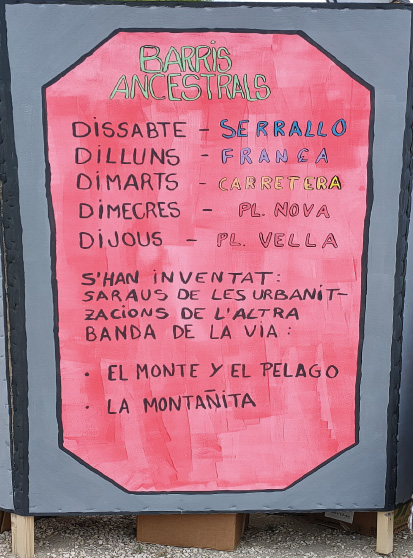 BARRiS
ANCESTRALS
DiSSABTE - SERRALLO
DILLUNS - FRANÇA
DiMARTS - CARRETERA
DiMECRES - PL. NOVA
DiJOUS - PL. VELLA
S'HAN iNVENTAT:
SARAUS DE LES URBANiT-
ZACIONS DE L'ALTRA
BANDA DE LA ViA:
· EL MONTE Y EL PELAGO
· LA MONTAÑiTA